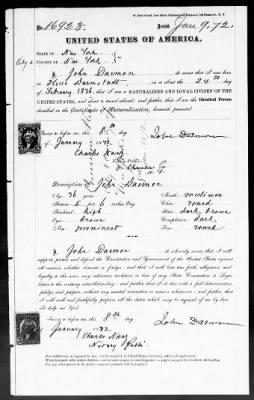 No. 16928 Issued Jan 9, 72.
UNITED STATES OF AMERICA.
STATE OF New York
City & COUNTY OF New York
I, John Darmon do swear that I was born
in Hesse Darmstadt on or about the 24th day
of February 1836, that I am a NATURALIZED AND LOYAL CITIZEN OF THE
UNITED STATES, and about to travel abroad; and further, that I am the Identical Person
described in the Certificate of Naturalization, herewith presented.
Sworn to before me this 8th day
of January 1872
John Darmon
Charles Nanz
Notary
N.Y.
Description of John Darmon
Age: 36 years
Mouth: medium
Stature: 5 feet 6 inches Eng.
Chin: round
Forehead: high
Hair: dark brown
Eyes: brown
Complexion: dark
Nose: prominent
Face: round
I, John Darmon do solemnly swear that I will
support, protect and defend the Constitution and Government of the United States against
all enemies, whether domestic or foreign; and that I will bear true faith, allegiance and
loyalty to the same, any ordinance, resolution or law of any State Convention or Legis-
lature to the contrary notwithstanding; and further, that I do this with a full determination,
pledge and purpose, without any mental reservation or evasion whatsoever; and further, that
I will well and faithfully perform all the duties which may be required of me by law.
So help me God.
Sworn to before me this 8th day
January 1872
John Darmon
Charles Nanz
Notary Public